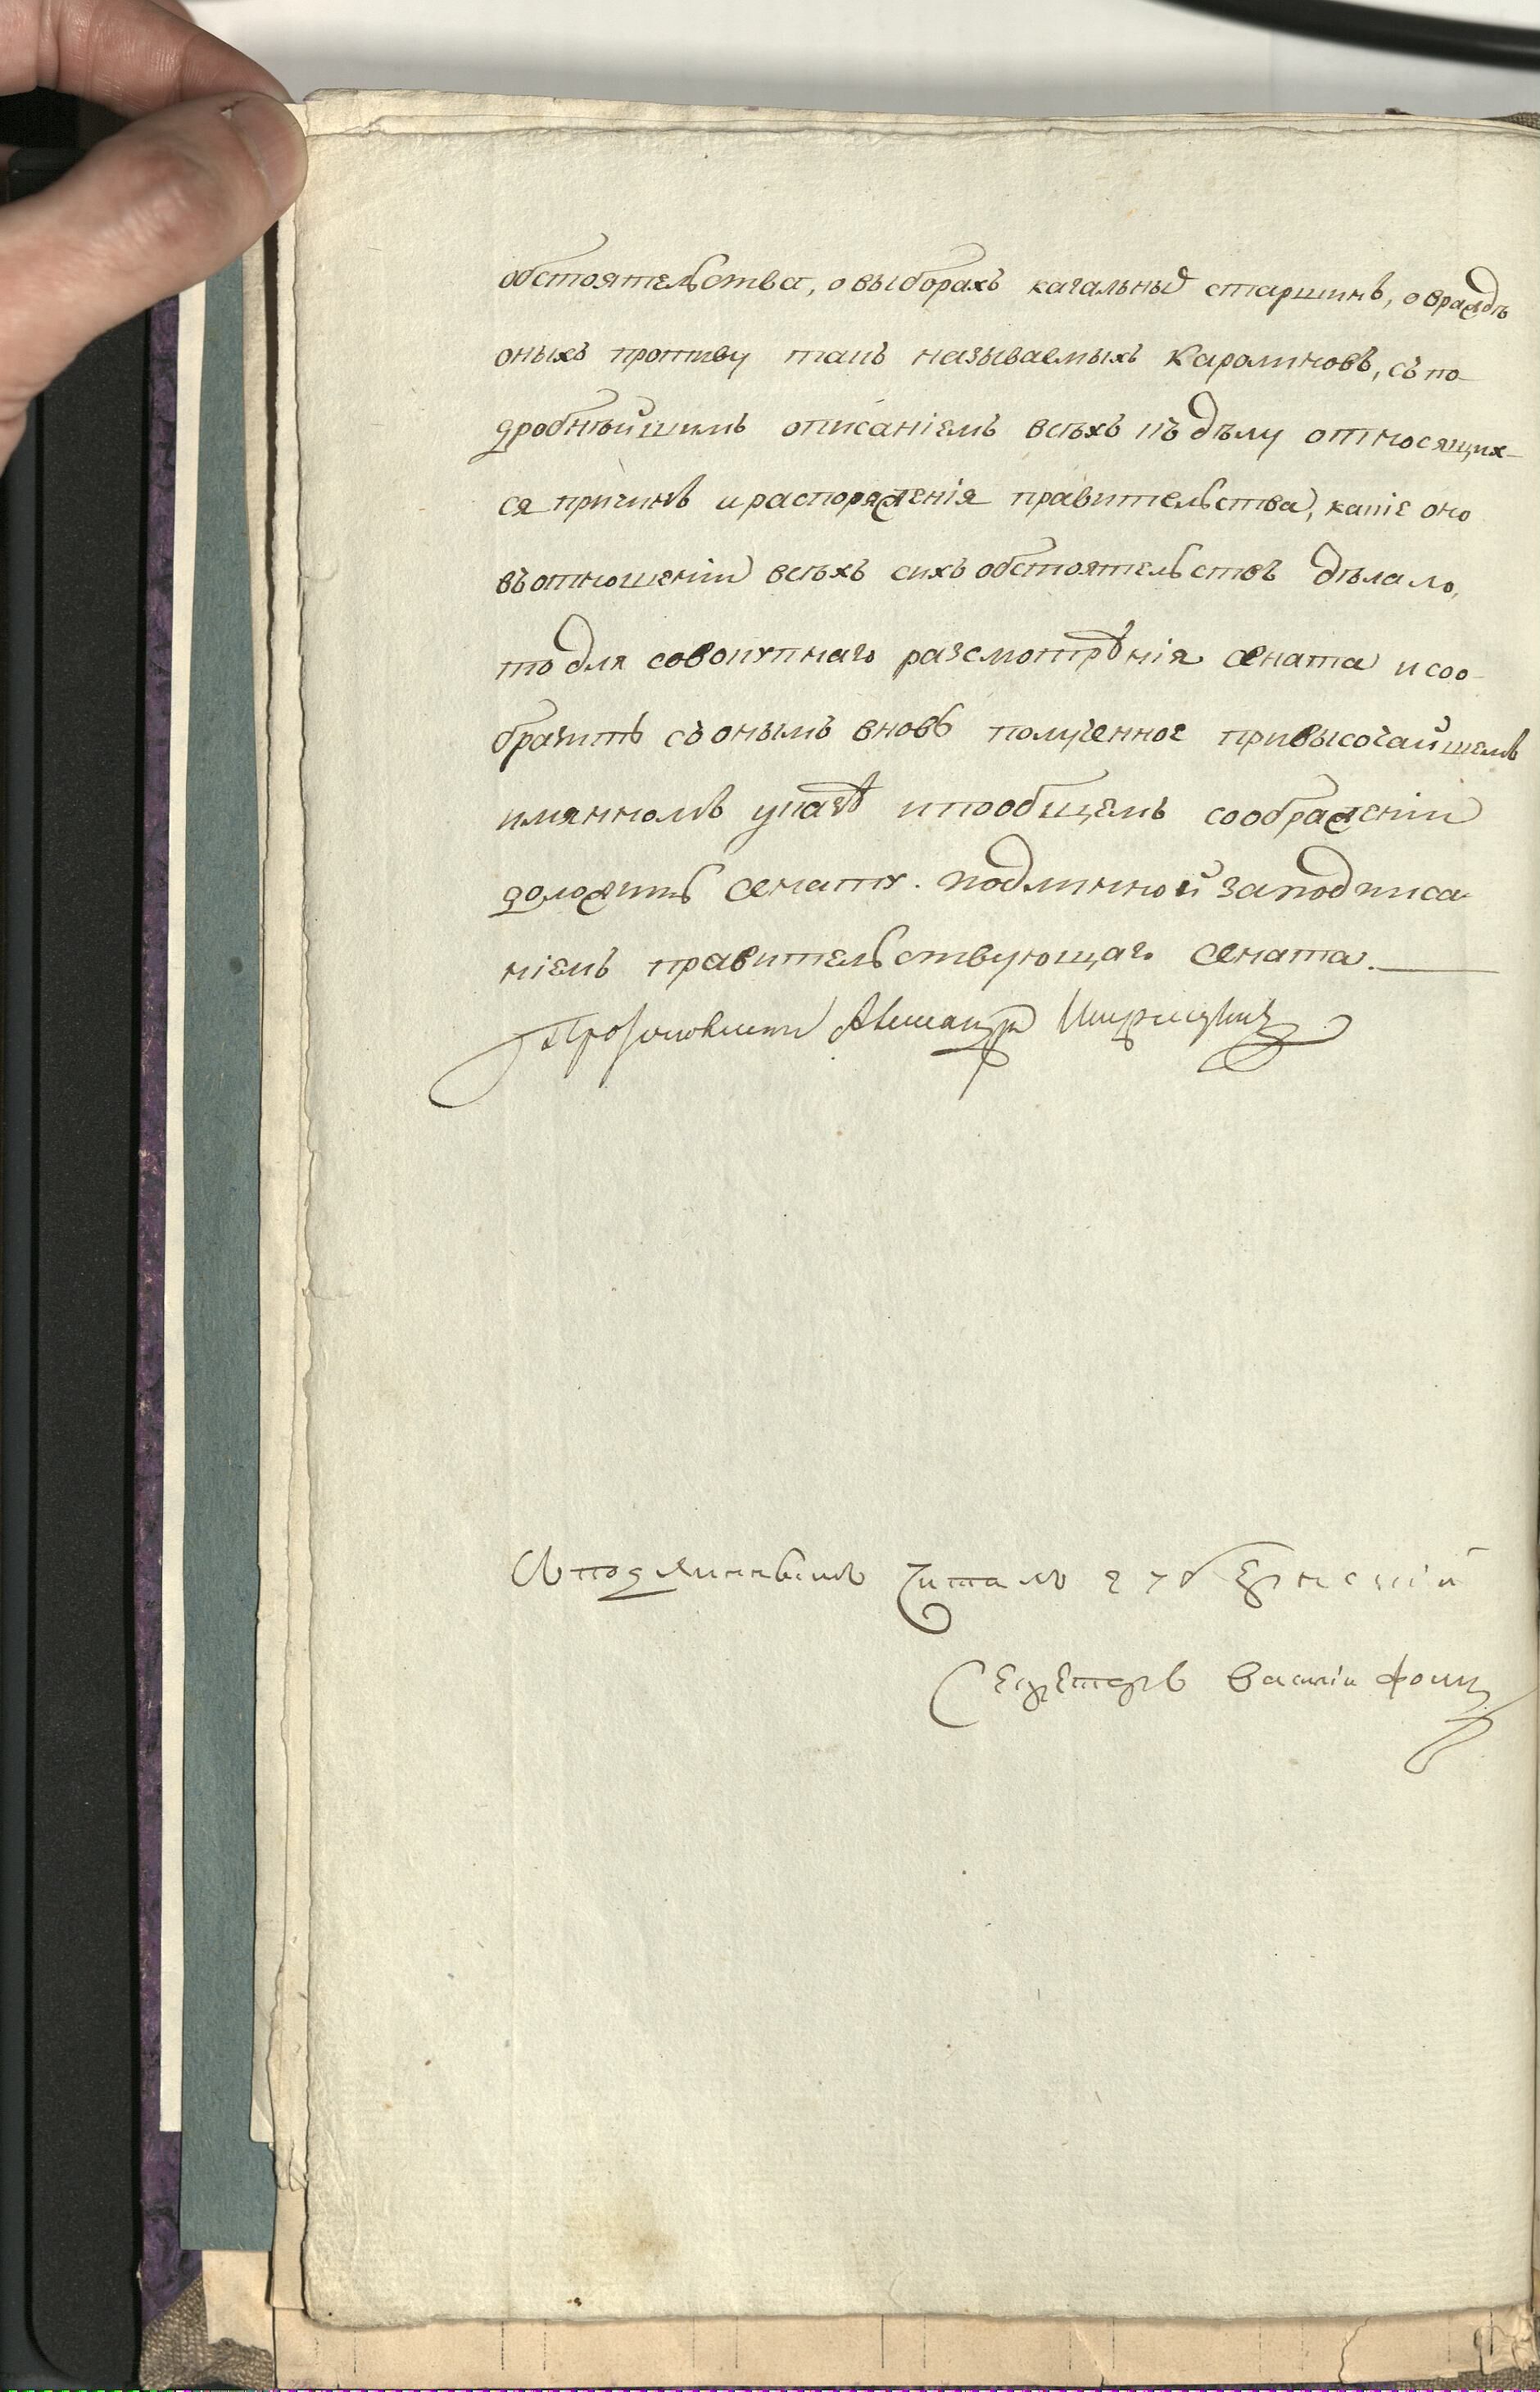 обстоятельства, о выборахъ кагальныхъ старшинъ, о враждѣ
оныхъ противу такъ называемыхъ Каролиновъ, съ по-
дробнѣйшимъ описаніемъ всѣхъ къ дѣлу относящих-
ся причинъ и распоряженія правительства, какіе оно
въ отношеніи всѣхъ сихъ обстоятельствъ дѣлало,
то для совокупнаго разсмотрѣнія сената и соо-
бразить съ онымъ вновь полученное при высочайшемъ
имянномъ указѣ и по общемъ соображеніи
доложить сенату. подлинной за подписа-
ніемъ правительствующаго сената.
Протоколистъ
Съ подлиннымъ читалъ губернскій
Секретарь Василій